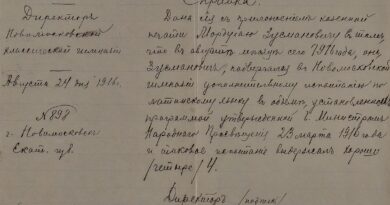 Справка.
Директоръ
Новомосковской
классической гимназіи
Августа 24 дня 1916г.
№898
г. Новомосковскъ
Екат. губ.
Дана сія съ приложеніемъ казенной
печати Мордухаю Зусмановичу въ томъ,
что въ августѣ мѣсяцѣ сего 1916 года, онъ
Зусмановичъ, подвергался въ Новомосковской
гимназіи дополнительному испытанію по
латинскому языку въ объемѣ, установленномъ
программой утвержденной г. Министромъ
Народнаго Просвѣщенія 23 марта 1916 года
и таковое испытаніе выдержалъ хорошо
/четыре/ 4.
Директоръ /подпись/